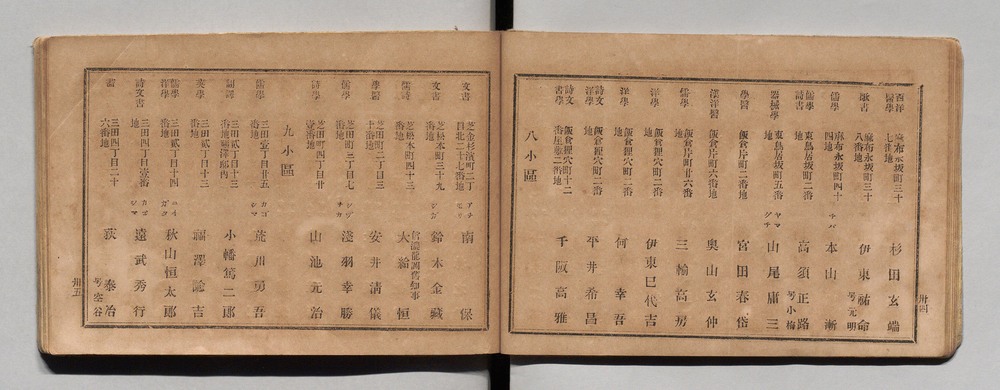 西洋醫學 麻布永坂町三十七番地 杉田玄端
麻布永坂町三十八番地 伊東祐命 号元明
儒學 麻布永坂町四十四番地 本山漸
儒學詩書 東鳥居坂町二番地 高須正路 号小梅
器械學 東鳥居坂町五番地 ヤマグチ 山尾庸三
學醫 飯倉片町二番地 宮田春岱
漢洋醫 飯倉片町六番地 奥山玄仲
儒學 飯倉片町廿六番地 三輪高房
洋學 飯倉狸穴町二番地 伊東巳代吉
洋學 飯倉狸穴町二番地 何幸吾
詩文洋學 飯倉狸穴町二番地 平井希昌
詩文書學 飯倉狸穴町十二番 千阪高雅
八小區
卅四
文書 芝金杉濱町二丁目北二十七番地 南保
文書 芝松本町三十九番地 シガ 鈴木金藏
儒詩 芝松本町四十三番地 大給恒
學醫 芝田町二丁目三十番地 安井清儀
儒學 芝田町三丁目七番地 淺羽幸勝
詩學 芝田町四丁目廿壹番地 山池元治
九小區
儒學 三田壹丁目廿五番地 カゴシマ 荒川勇吾
飜譯 三田貳丁目十三番地福澤邸内 小幡篤二郎
英學 三田貳丁目十三番地 福澤諭吉
儒學洋學 三田貳丁目十四番地 秋山恒太郎
詩文書 三田四丁目壹番地 カゴシマ 遠武秀行
畫 三田四丁目二十六番地 荻泰治
卅五